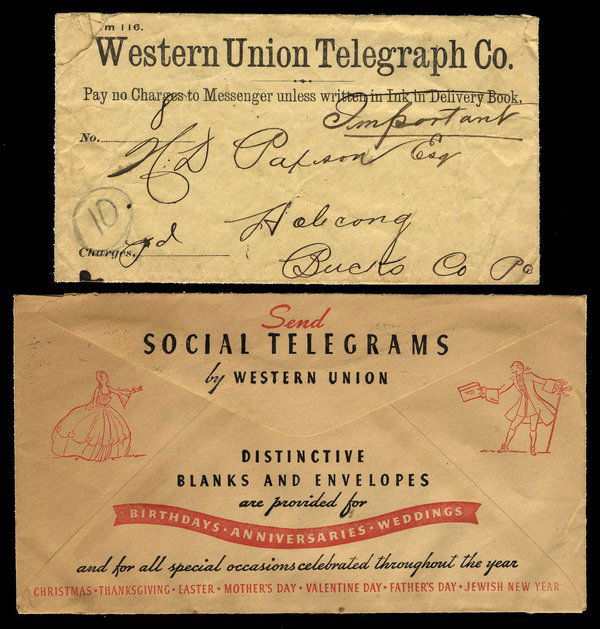 m 116.
Western Union Telegraph Co.
Pay no Charges to Messenger unless written in Ink in Delivery Book.
Important
No. 8
H. D Paxson Esq
10
Holicong
Charges, pd
Bucks Co Pa
Send
SOCIAL TELEGRAMS
by WESTERN UNION
DISTINCTIVE
BLANKS AND ENVELOPES
are provided for
BIRTHDAYS · ANNIVERSARIES · WEDDINGS
and for all special occasions celebrated throughout the year
CHRISTMAS · THANKSGIVING · EASTER · MOTHER'S DAY · VALENTINE DAY · FATHER'S DAY · JEWISH NEW YEAR